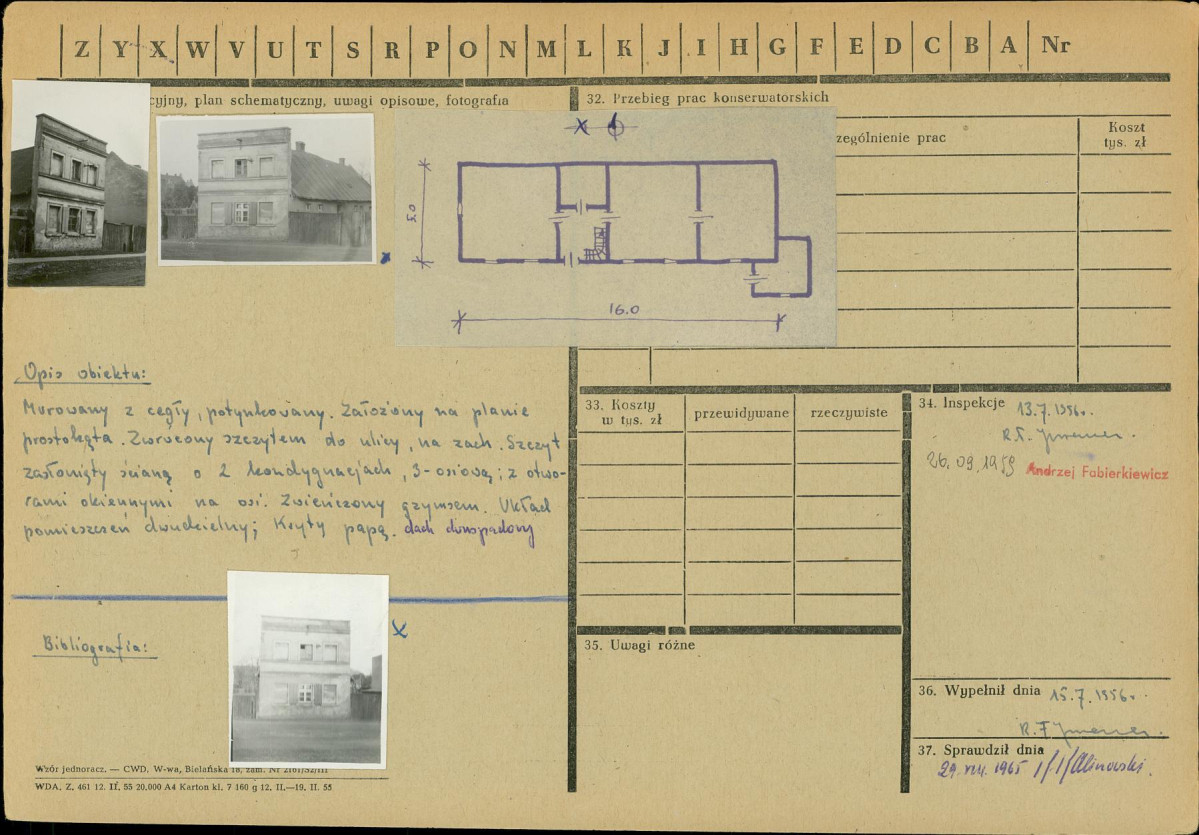 Z Y X W V U T S R P O N M L K J I H G F E D C B A Nr
cyjny, plan schematyczny, uwagi opisowe, fotografia
32. Przebieg prac konserwatorskich
zególnienie prac
Koszt
tys. zł
5.0
16.0
Opis obiektu:
Murowany z cegły, potynkowany. Założony na planie
prostokąta. Zwrócony szczytem do ulicy, na zach. Szczyt
zasłonięty ścianą o 2 kondygnacjach, 3-osiową; z otwo-
rami okiennymi na osi. Zwieńczony gzymsem. Układ
pomieszczeń dwudzielny; Kryty papą. dach dwuspadowy
Bibliografia:
33. Koszty
w tys. zł
przewidywane
rzeczywiste
34. Inspekcje 13.7.1956r.
26.09.1959 Andrzej Fabierkiewicz
35. Uwagi różne
36. Wypełnił dnia 15.7.1956r.
37. Sprawdził dnia
29.VIII.1965 Kalinowski.
Wzór jednoracz. — CWD, W-wa, Bielańska 18, zam. Nr 2161/52/III
WDA. Z. 461 12. II. 55 20.000 A4 Karton kl. 7 160 g 12. II.—19. II. 55